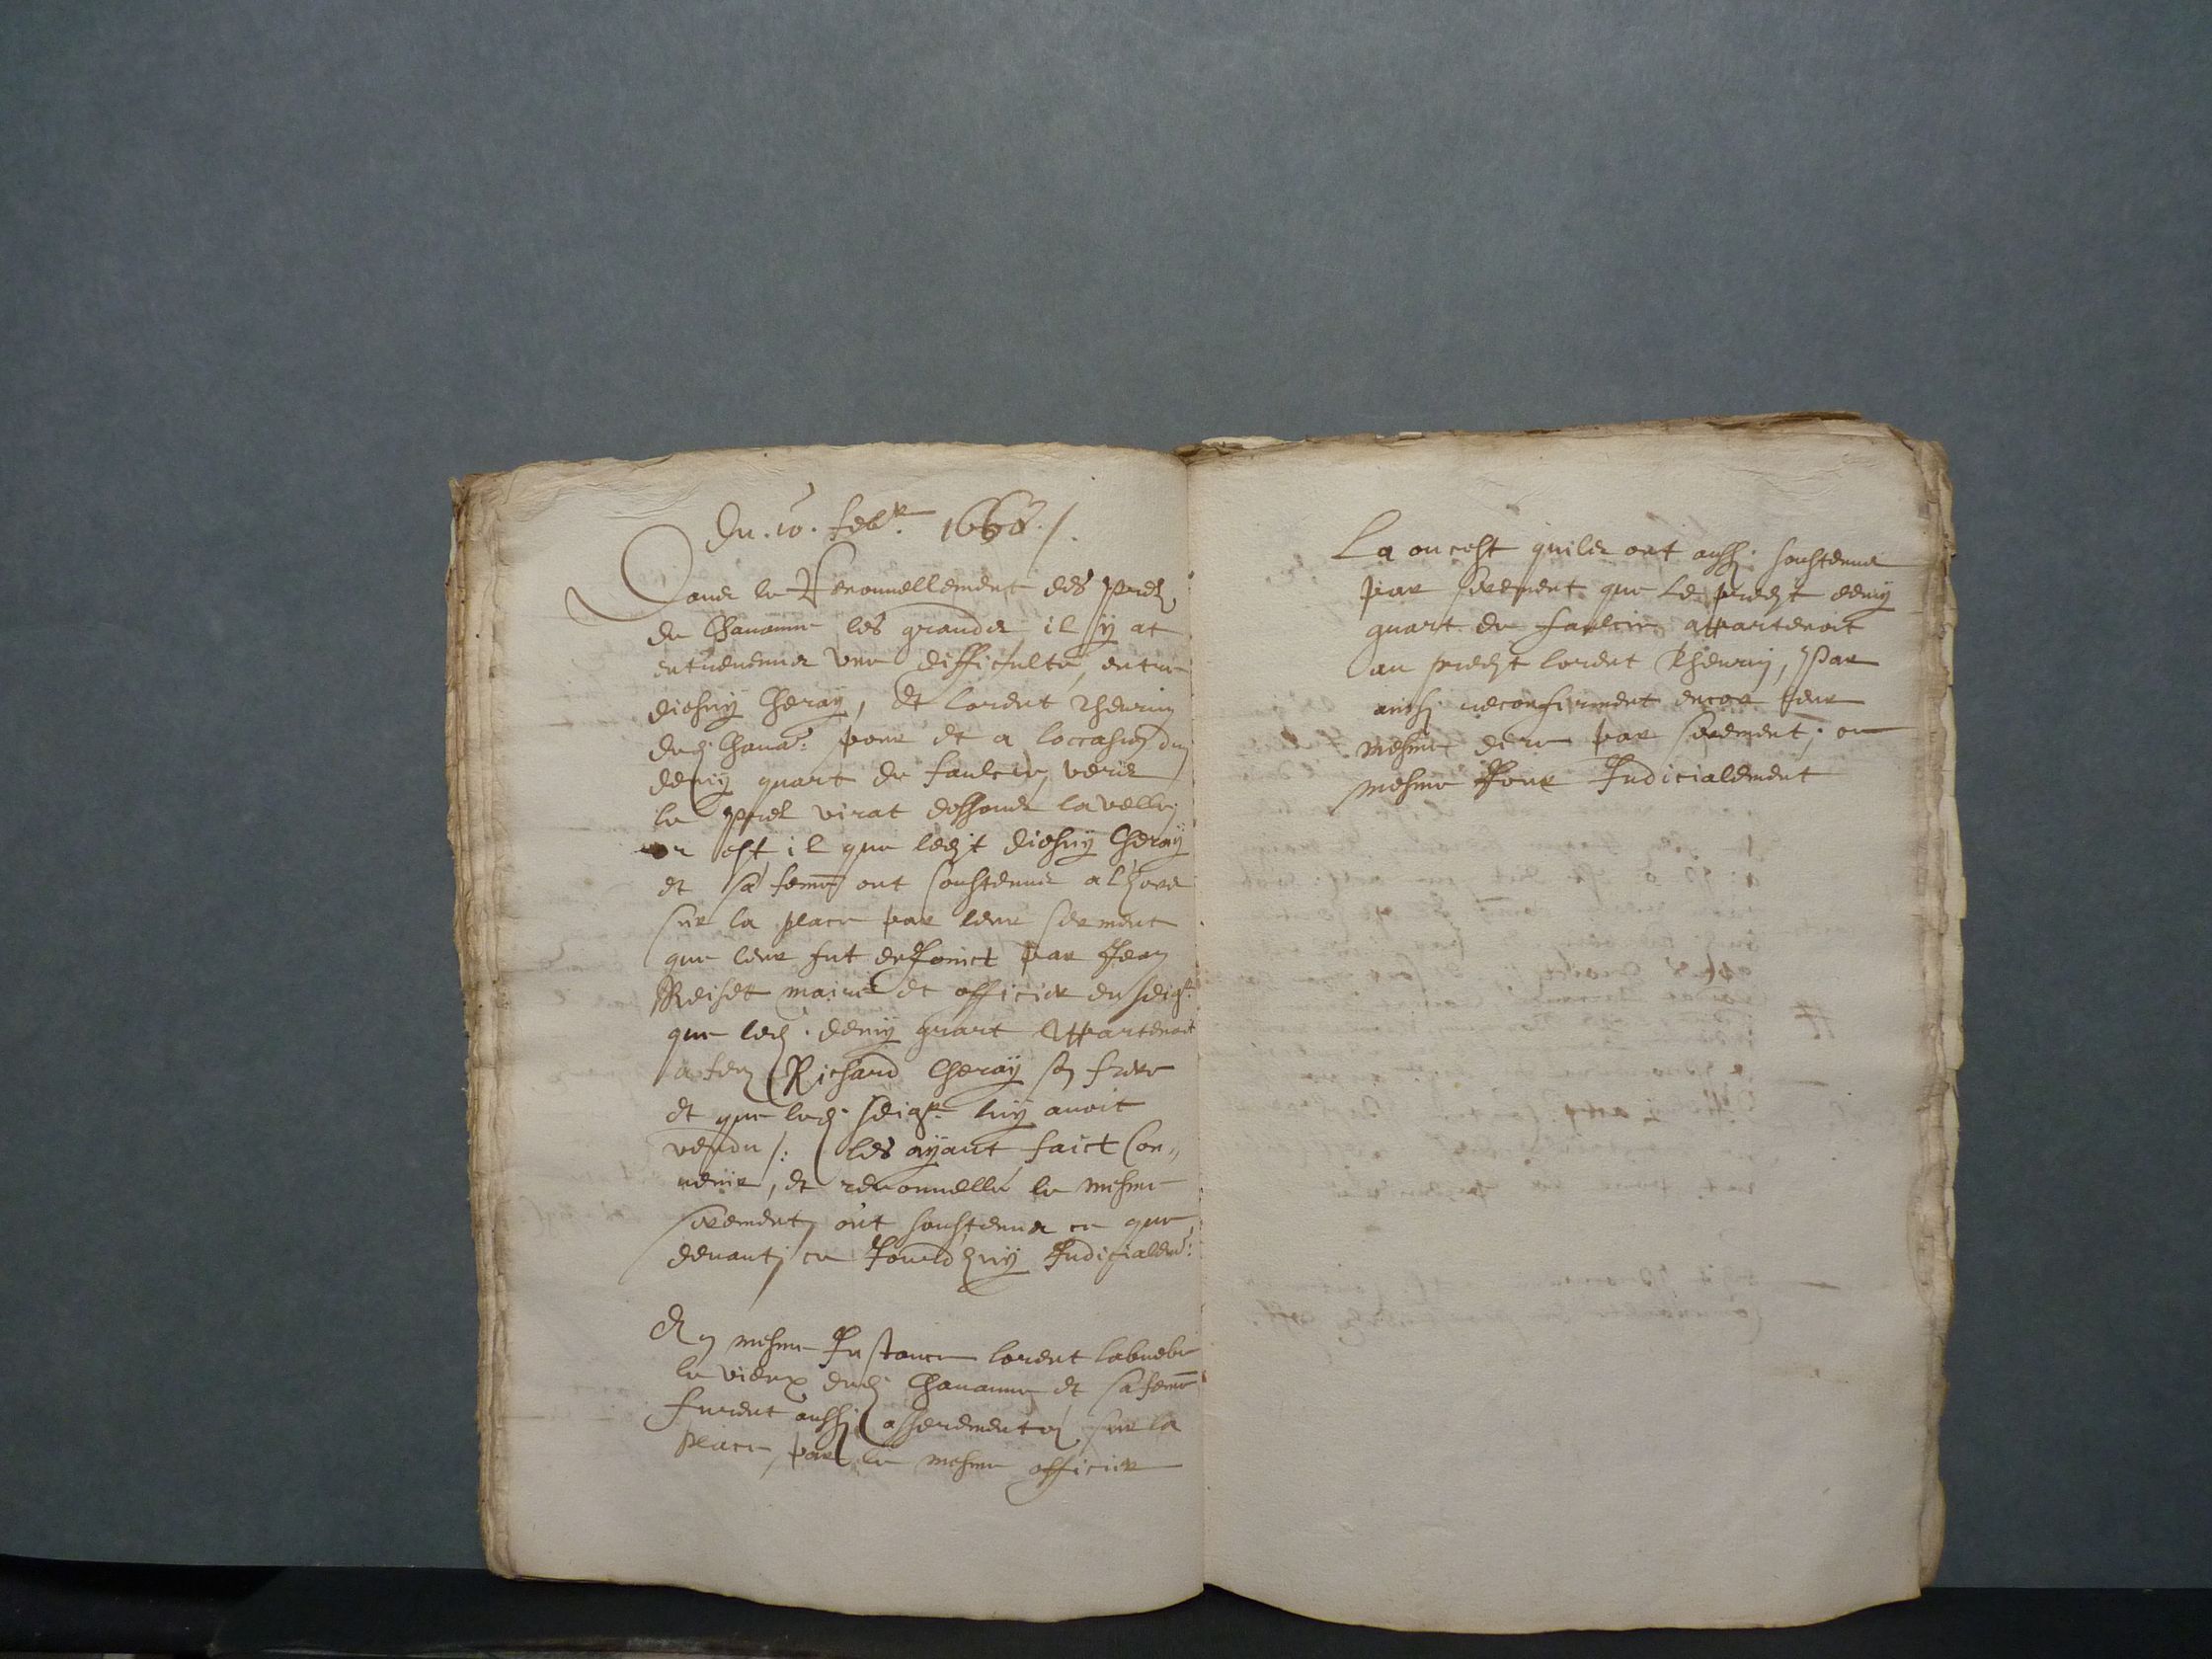 Du. 10. feb.r 1668 /.
Dans le Renouvellement des prelz
de Chavanne les grands il y at
entrevenus une difficulté, entre
diehny Cheray, et lorent Thevenin
dud. Chava.e pour et a loccasion du
demy quart de faulcie, vers
le prel virat dessous la velle,
or est il que ledit diehny Cheray
et sa femme ont soustenus alhors
sur la place par leur serment
que leur fut enjoinct par Jean
Reiset maire et officier en seig.r
que led. demy quart appartenoit
a feu Richard Cheray son frere
et que led. seig.r luy avoit
vendu /: les ayant faict con„
venir, et renouvellé le mesme
serement, ont soustenus ce que
devant, ce Jourdhuy Judicialem.t
En mesme Instance lorent labuebe
le vieux dud. Chavanne et sa femme
furent aussi asserementez sur la
place, par le mesme officier
La ou cest quilz ont aussi soustenus
par serement que le predit demy
quart de faulcie appartenoit
au predit lorent Thevenin, Par
ainsi reconfirment encor leur
mesme dire par serement, ce
mesme Jour Judicialement